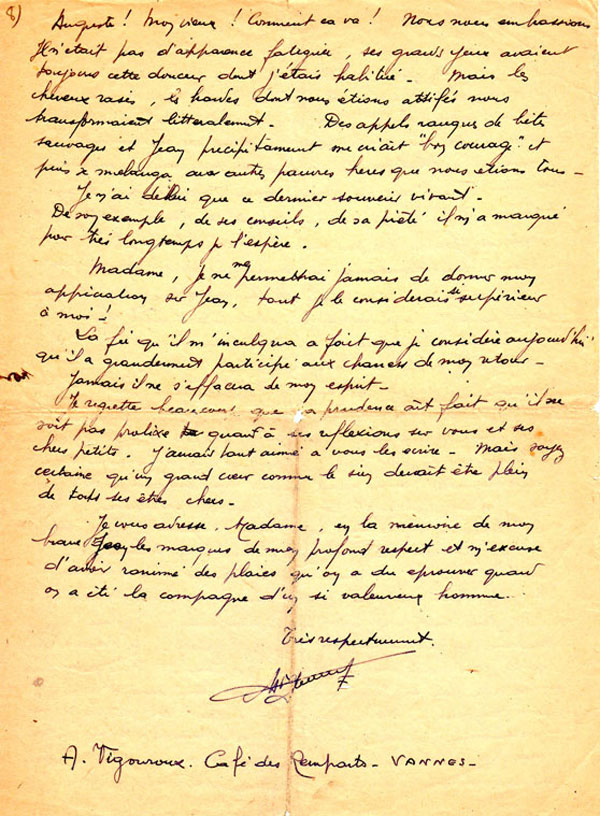 8)
Auguste ! Mon vieux ! Comment ca va ! Nous nous embrassions
Il n'était pas d'apparence fatiguée, ses grands yeux avaient
toujours cette douceur dont j'étais habitué - Mais les
cheveux rasés, les hardes dont nous étions attifés nous
transformaient littéralement - Des appels rauques de bêtes
sauvages et Jean précipitamment me criait "bon courage" et
puis se mélangea aux autres pauvres hères que nous étions tous -
Je n'ai que ce dernier souvenir vivant -
De son exemple, de ses conseils, de sa piété il m'a marqué
pour très longtemps je l'espère.
Madame, je ne me permettrai jamais de donner mon
appréciation sur Jean, tant je le considérais si supérieur
à moi !
La foi qu'il m'inculqua a fait que je considère aujourd'hui
qu'il a grandement participé aux chances de mon retour -
Jamais il ne s'effacera de mon esprit -
Je regrette beaucoup que sa prudence ait fait qu'il ne
soit pas prolixe quant à ses réflexions sur vous et ses
chers petits. J'aurais tant aimé à vous les écrire - Mais soyez
certaine qu'un grand cœur comme le sien devait être plein
de tous ses êtres chers -
Je vous adresse, Madame, en la mémoire de mon
brave Jean les marques de mon profond respect et m'excuse
d'avoir ranimé des plaies qu'on a du éprouver quand
on a été la compagne d'un si valeureux homme...
Très respectueusement.
A. Vigouroux. Café des Remparts - VANNES -